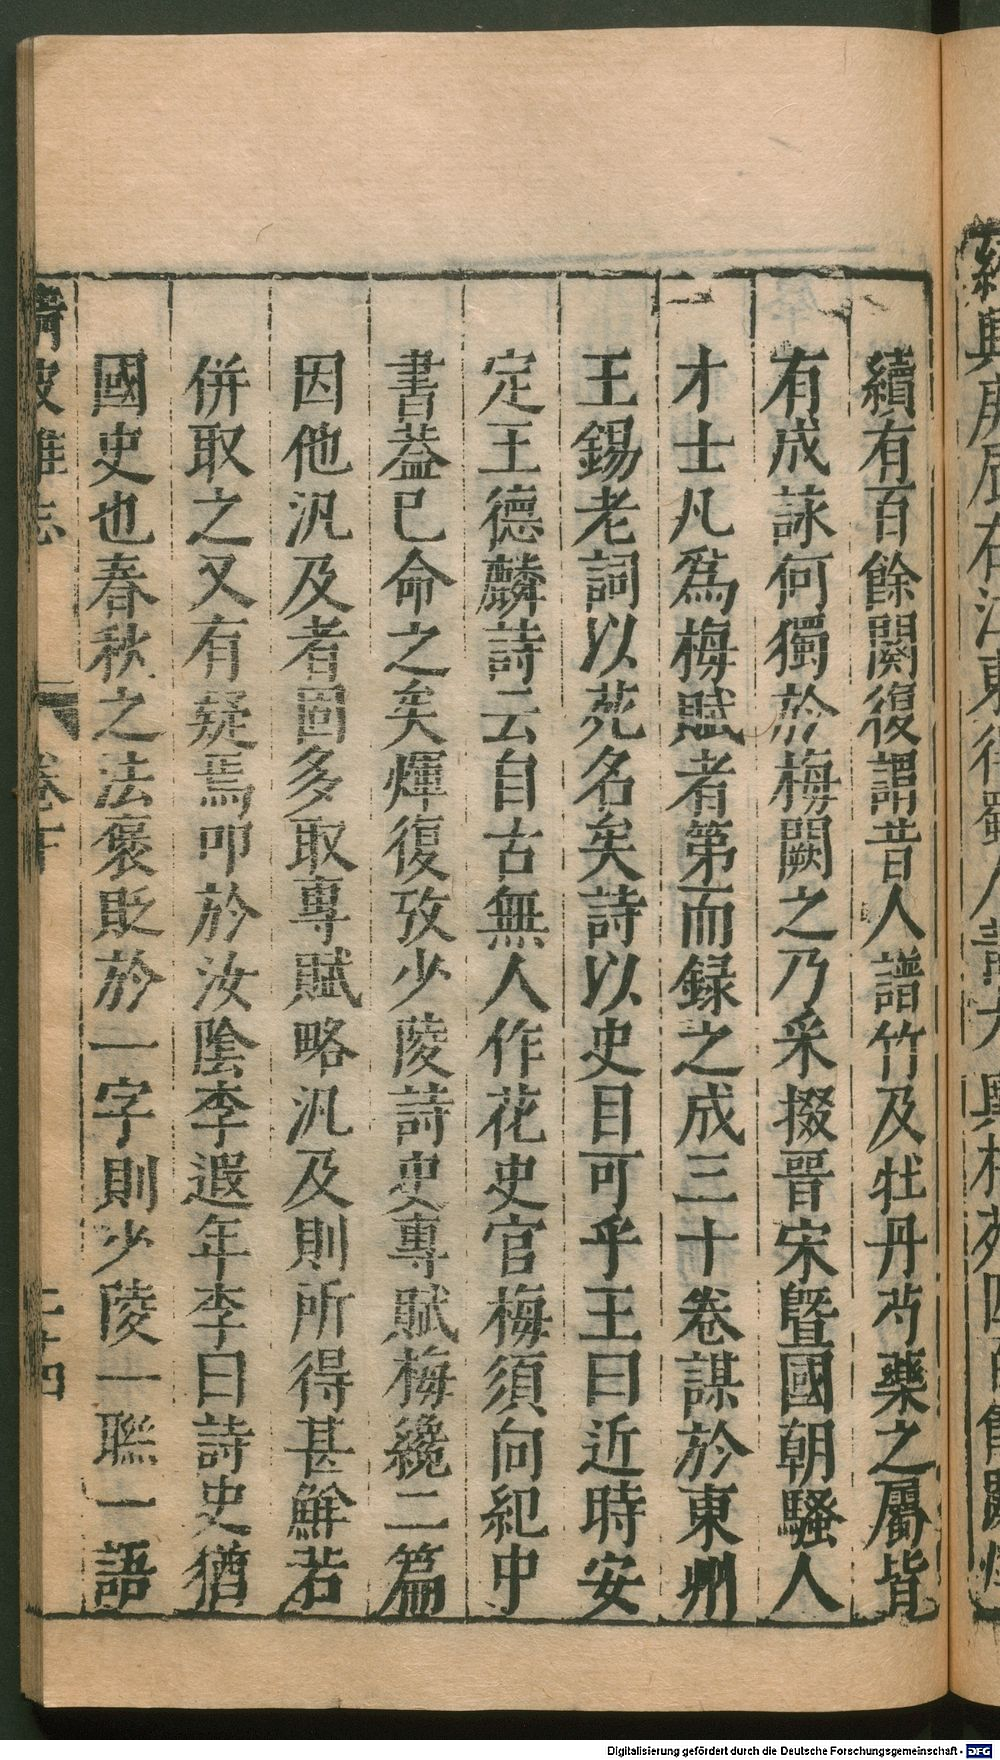 續有百餘闋復謂昔人譜竹及牡丹芍藥之屬皆
有成詠何獨於梅闕之乃采掇晋宋曁國朝騷人
才士凡爲梅賦者第而録之成三十卷謀於東州
王錫老詞以苑名矣詩以史目可乎王曰近時安
定王德麟詩云自古無人作花史官梅須向紀中
書葢已命之矣煇復攷少陵詩史專賦梅纔二篇
因他汎及者固多取專賦略汎及則所得甚鮮若
併取之又有疑焉叩於汝陰李遐年李曰詩史猶
國史也春秋之法褒貶於一字則少陵一聯一語
清波雜志
卷十
二十四
Digitalisierung gefördert durch die Deutsche Forschungsgemeinschaft - DFG